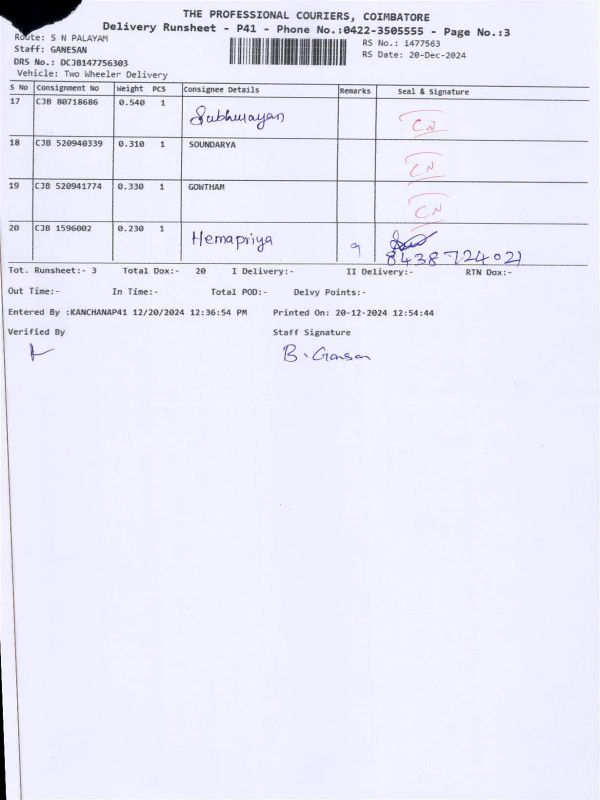 THE PROFESSIONAL COURIERS, COIMBATORE
Delivery Runsheet - P41 - Phone No.:0422-3505555 - Page No.:3
Route: S N PALAYAM
RS No.: 1477563
Staff: GANESAN
RS Date: 20-Dec-2024
DRS No.: DCJB147756303
Vehicle: Two Wheeler Delivery
S No Consignment No Weight PCS Consignee Details Remarks Seal & Signature
17 CJB 80718686 0.540 1 CN
18 CJB 520940339 0.310 1 SOUNDARYA CN
19 CJB 520941774 0.330 1 GOWTHAM CN
20 CJB 1596002 0.230 1 Hemapriya 9
8438724021
Tot. Runsheet:- 3 Total Dox:- 20 I Delivery:- II Delivery:- RTN Dox:-
Out Time:- In Time:- Total POD:- Delvy Points:-
Entered By :KANCHANAP41 12/20/2024 12:36:54 PM Printed On: 20-12-2024 12:54:44
Verified By Staff Signature
B.